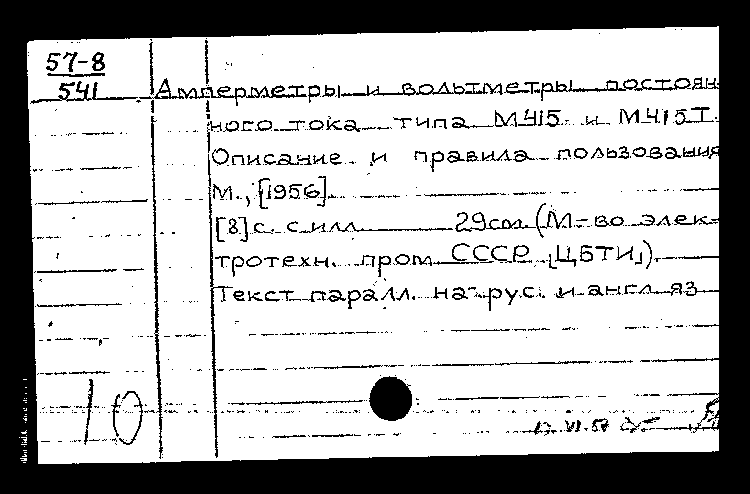 57-8
541
Амперметры и вольтметры постоян-
ного тока типа М415 и М415Т.
Описание и правила пользования
М., [1956].
[8] с. с илл. 29см. (М-во элек-
тротехн. пром. СССР [ЦБТИ]).
Текст паралл. на рус. и англ. яз
10